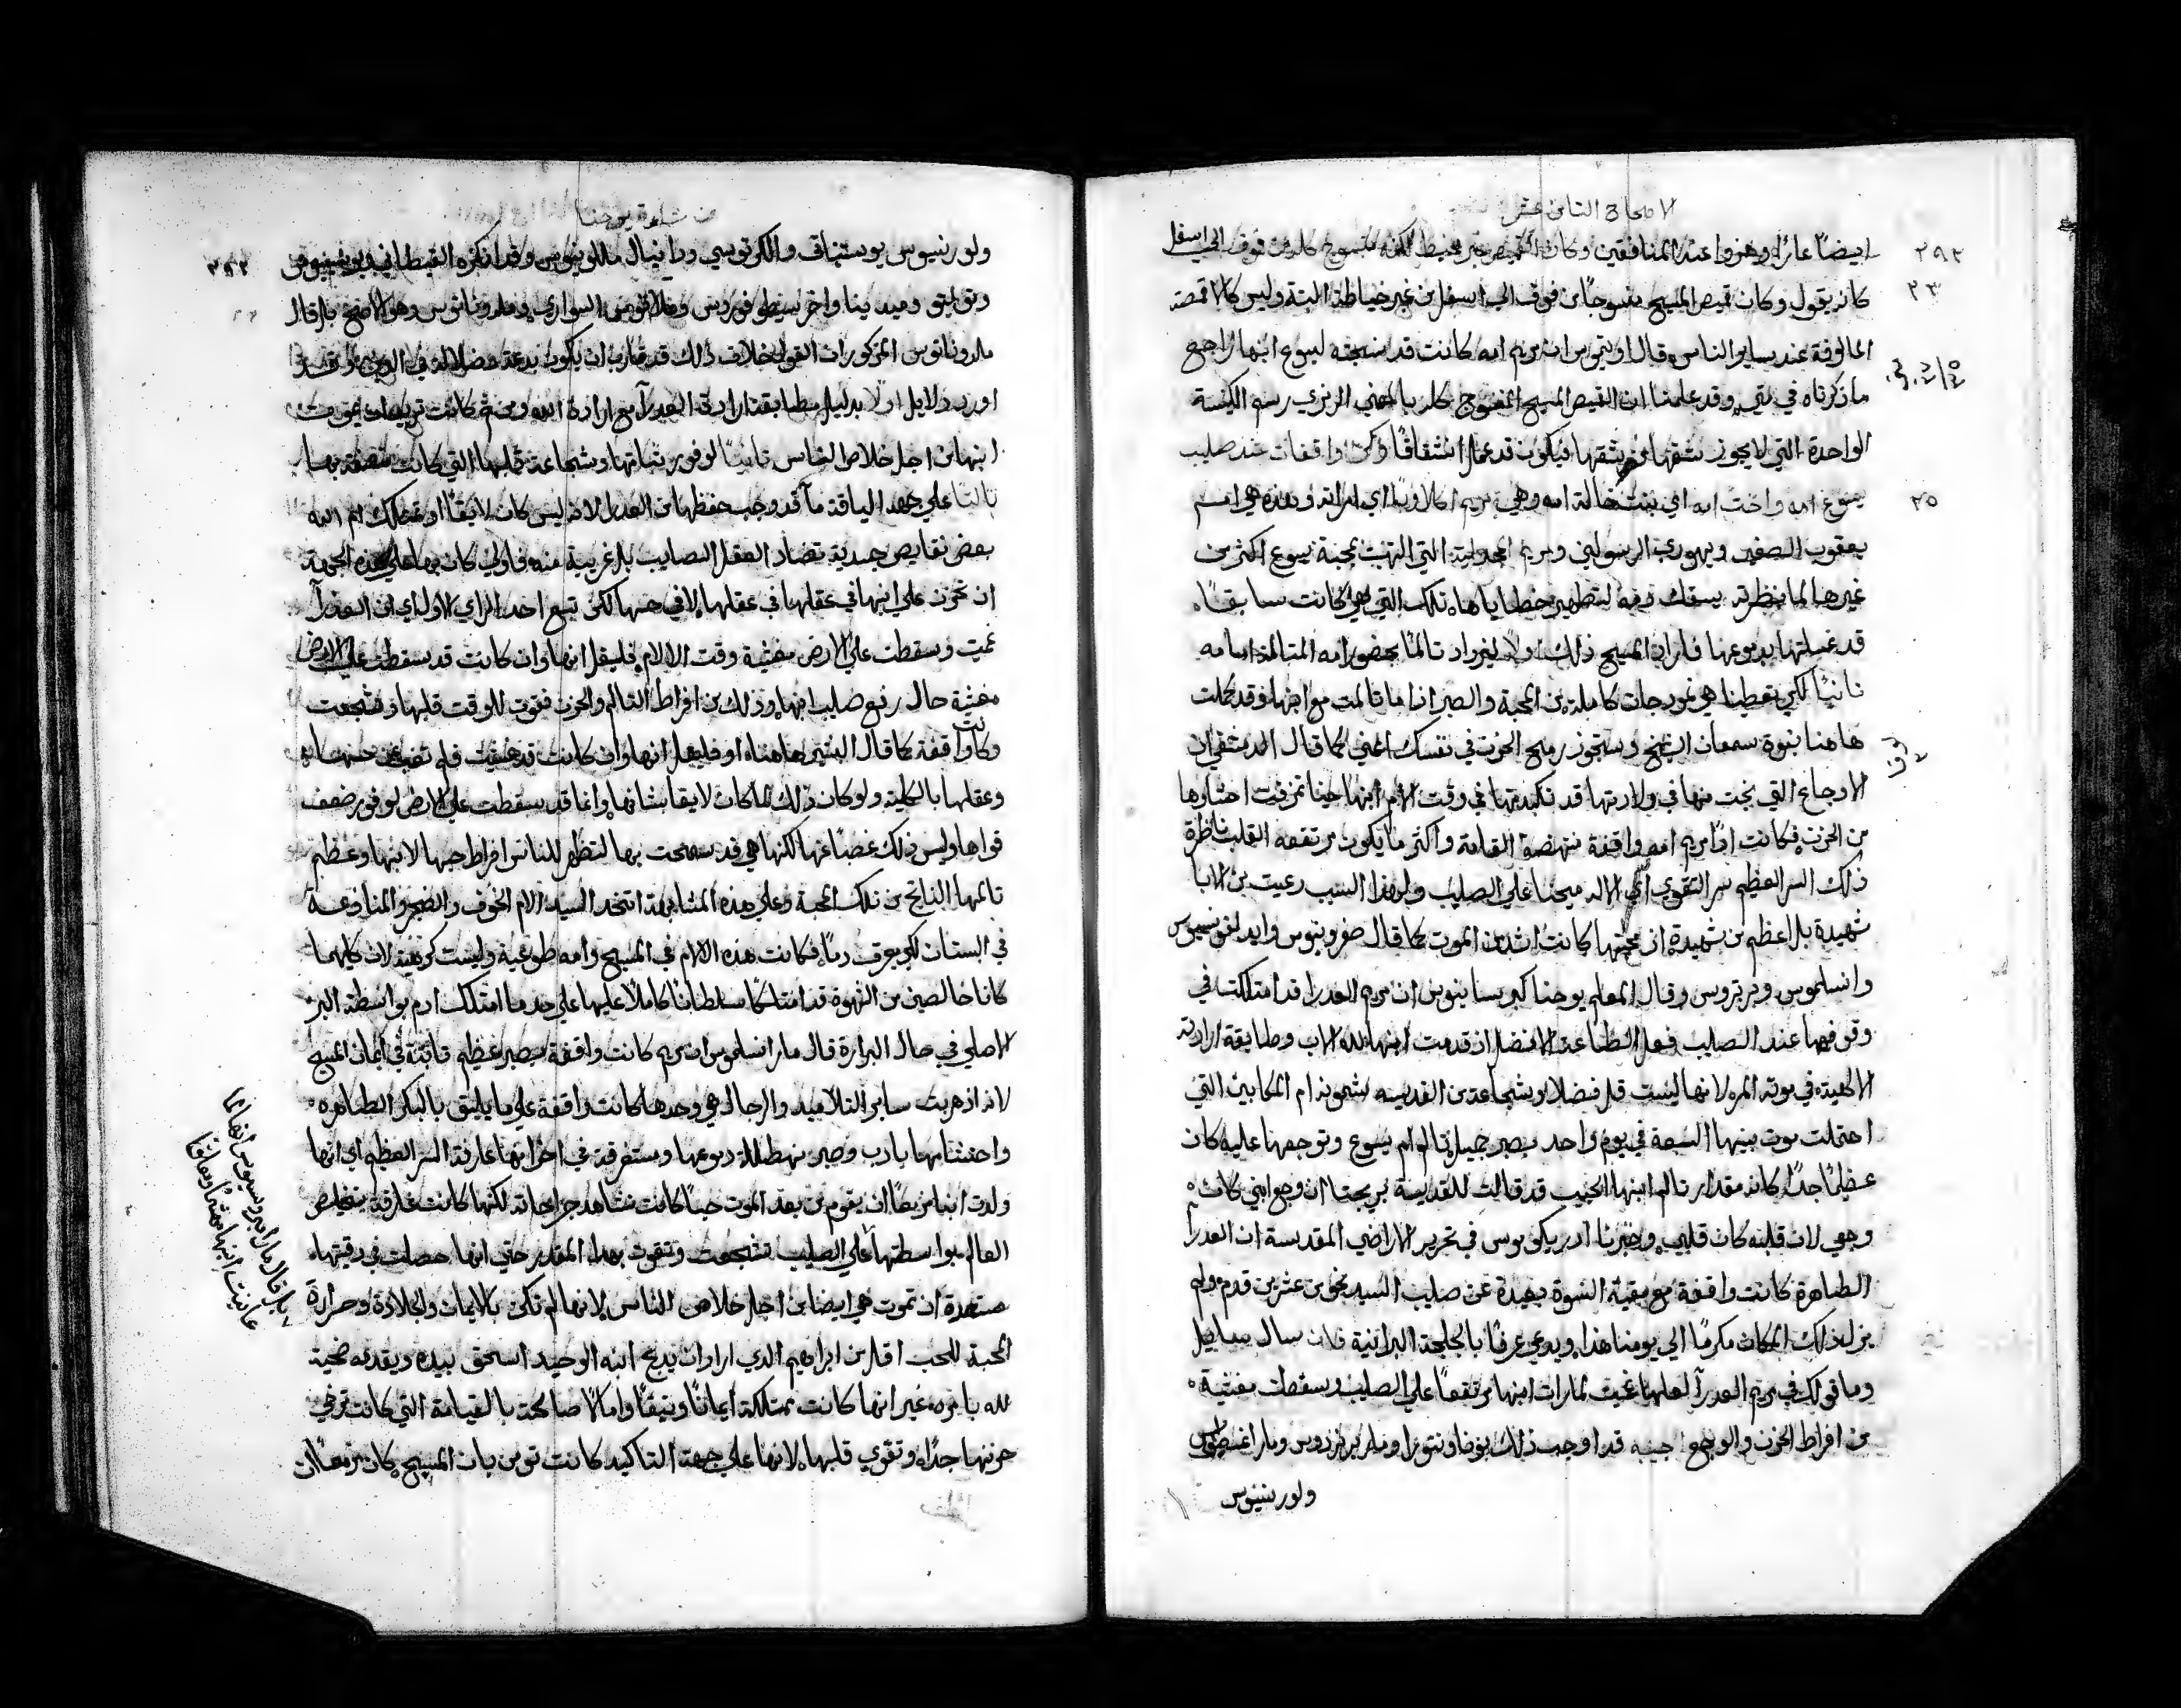 الاصحاح الثامن عشر
٢٩٢
ايضًا عائرًا وهزوا عند المنافقين وكان القميص غير مخيط لكنه منسوج كله من فوق الي اسفل
٢٣
كانه يقول وكان قميص المسيح منسوجًا من فوق الي اسفل من غير خياطة البتة وليس كالاقمصة
المالوفة عند ساير الناس وقال اوتيموس ان مريم امه كانت قد نسجته ليسوع ابنها راجع
ماذكرناه في متي وقد علمنا ان القميص المسيح المنسوج كله بالمعني الرمزي رسم الكنيسة
الواحدة التي لا يجوز شقها من يشقها فيكون قد عمل انشقاقًا وكن واقفات عند صليب
٢٥
يسوع امه واخت امه اي بنت خالة امه وهي مريم اكلاوبا اي امراته وهذه هي ام
يعقوب الصغير ويهودي الرسولين ومريم المجدلية التي التهبت بمحبة يسوع اكثر من
غيرها لما ينظرته يسفك دمه لتطهير خطاياها تلك التي كانت سابقًا
قد غسلتها بدموعها فاراد المسيح ذلك اولا ليزداد تالمًا بحضور امه المتالمة امامه
ثانيًا لكي يعطينا هي نموذجات كاملة من المحبة والصبر اذا ما تالمت مع ابنها وقد كملت
هاهنا نبوة سمعان الشيخ وستجوز رمح الحزن في نفسك اعني كما قال الدمشقي ان
الاوجاع التي نجت منها في ولادتها قد تكبدتها في وقت الام ابنها حينا تمزقت احشاوها
من الحزن فكانت اذًا مريم امه واقفة منتهضة القامة واكثر ما يكون مرتفعه القلب ناظرة
ذلك السر العظيم سر التقوي اي الاله ميحنا علي الصليب ولهذا السبب دعيت من الابا
شهيدة بل اعظم من شهيدة ان محبتها كانت اشد من الموت كما قال صفرونيوس وايدلفونسيوس
وانسلموس وبربروس وقال المعلم يوحنا كبريسيانوس ان مريم العدرا قد امتلكت في
وقوفها عند الصليب فعل الطاعة الافضل ان قدمت ابنها لله الاب وطابقة ارادته
الالهية في موته المر لانها ليست قل فضلا وشجاعة من القديسه شمونه ام المكابيين التي
احتملت موت بنيها السبعة في يوم واحد بصبر جميل فتالم ام يسوع وتوجعها عليه كان
عظيمًا جدًا كانه مقدار تالم ابنها الحبيب قد قالت للقديسة بريجتا ان وجع ابني كان
وجعي لان قلبه كان قلبي وخبرنا ادريكوموس في تحرير الاراضي المقدسة ان العدرآ
الطاهرة كانت واقفة مع بقية النسوة بعيدة عن صليب السيد نحو من عشرين قدم ولم
يزل ذلك المكان مكرمًا الي يومنا هذا ويدعي عرفًا بالجلجة البرانية فان سال سايل
وما قولك في مريم العدرآ لعلها غميت لمارات ابنها مرتفعًا علي الصليب وسقطت مغشية
من افراط الحزن والوجع اجيبه قد اوجب ذلك بوناونتورا ومار برنردوس ومار اغسطوس
ولورنسيوس
من بشارة يوحنا
٢٩٣
ولورنسيوس يوستنياني والكرتوسي ودانيال مالونيوس وقد انكره القبطاني
مالدوناتوس المذكور ان القول بخلاف ذلك قد قارب ان يكون بدعة وضلالة في الدين
اورد دلايل اولا بدليل مطابقة ارادة العدرآ مع ارادة الله ومن ثم كانت تريد ان يموت
ابنها من اجل خلاص الناس ثانيًا لوفور ثباتها وشجاعة قلبها التي كانت متصفة بها
ثالثًا علي جهة اللياقة مآ قد وجب حفظها من العدرا لانه ليس كان لايقًا ان تمتلك ام الله
بعض نقايص جسدية تضاد العقل الصايب بل غريبة منه فاولي كان بها علي هذه الجهة
ان تحزن علي ابنها في عقلها في عقلها لا في حسها لكن تبع احد الراي الاول اي ان العدرآ
غميت وسقطت علي الارض مغشية وقت الالام فليقل انها وان كانت قد سقطت علي الارض
مغشية حال رفع صليب ابنها وذلك من افراط التالم والحزن فقوت للوقت قلبها وتشجعت
وكانت واقفة كما قال البشير هاهنا او فليقل انها وان كانت قد غميت فلم تضيع حسها
وعقلها بالكلية ولو كان ذلك لما كان لايقا بشانها وانما قد سقطت علي الارض لوفور ضعف
قواها وليس ذلك غصبًا عنها لكنها هي قد سمحت بها لتظهر للناس افراط حبها لابنها وعظم
تالمها الناتج من تلك المحبة وعلي هذه المشابهة اتخذ السيد الام الخوف والضجر والمنازعة
في البستان لكي يعرق دمًا فكانت هذه الالام في المسيح وامه طوعية وليست كرهية لان كليهما
كانا خالصين من الشهوة قد امتلكا سلطانًا كاملًا عليها علي حد ما امتلك ادم بواسطة البر
الاصلي في حال البرارة قال مار انسلموس ان مريم كانت واقفة بصبر عظيم ثابتة في ايمان المسيح
لانه اذ هربت ساير التلاميد والرجال هي وحدها كانت واقفة علي ما يليق بالبكر الطاهره
واحتشامها بادب وصبر منهطلة دموعها ومستغرقة في احزانها عارفة السر العظيم اي انها
ولدت ابنا مزمعًا ان يقوم من بعد الموت حيًا كانت تشاهد جراحاته لكنها كانت عارفة بتخليص
العالم بواسطتها علي الصليب تشجعت وتقوت بهذا المقدر حتي انها حصلت في وقتها
مستعدة ان تموت هي ايضا من اجل خلاص الناس لانها لم تكن بالايمان والجلادة وحرارة
المحبة للحب اقل من ابراهيم الدي اراد ان يدبح ابنه الوحيد اسحق بيده ويقدمه ضحية
لله بامره غير انها كانت ممتلكة ايمانًا وثيقًا وامالًا صالحة بالقيامة التي كانت ترخي
حزنها جدًا وتقوي قلبها لانها علي جهة التاكيد كانت تومن بان المسيح كان مزمعًا ان
بل قال مار امبروسيوس انها لما
عاينت ابنها ميتًا ومعلقًا